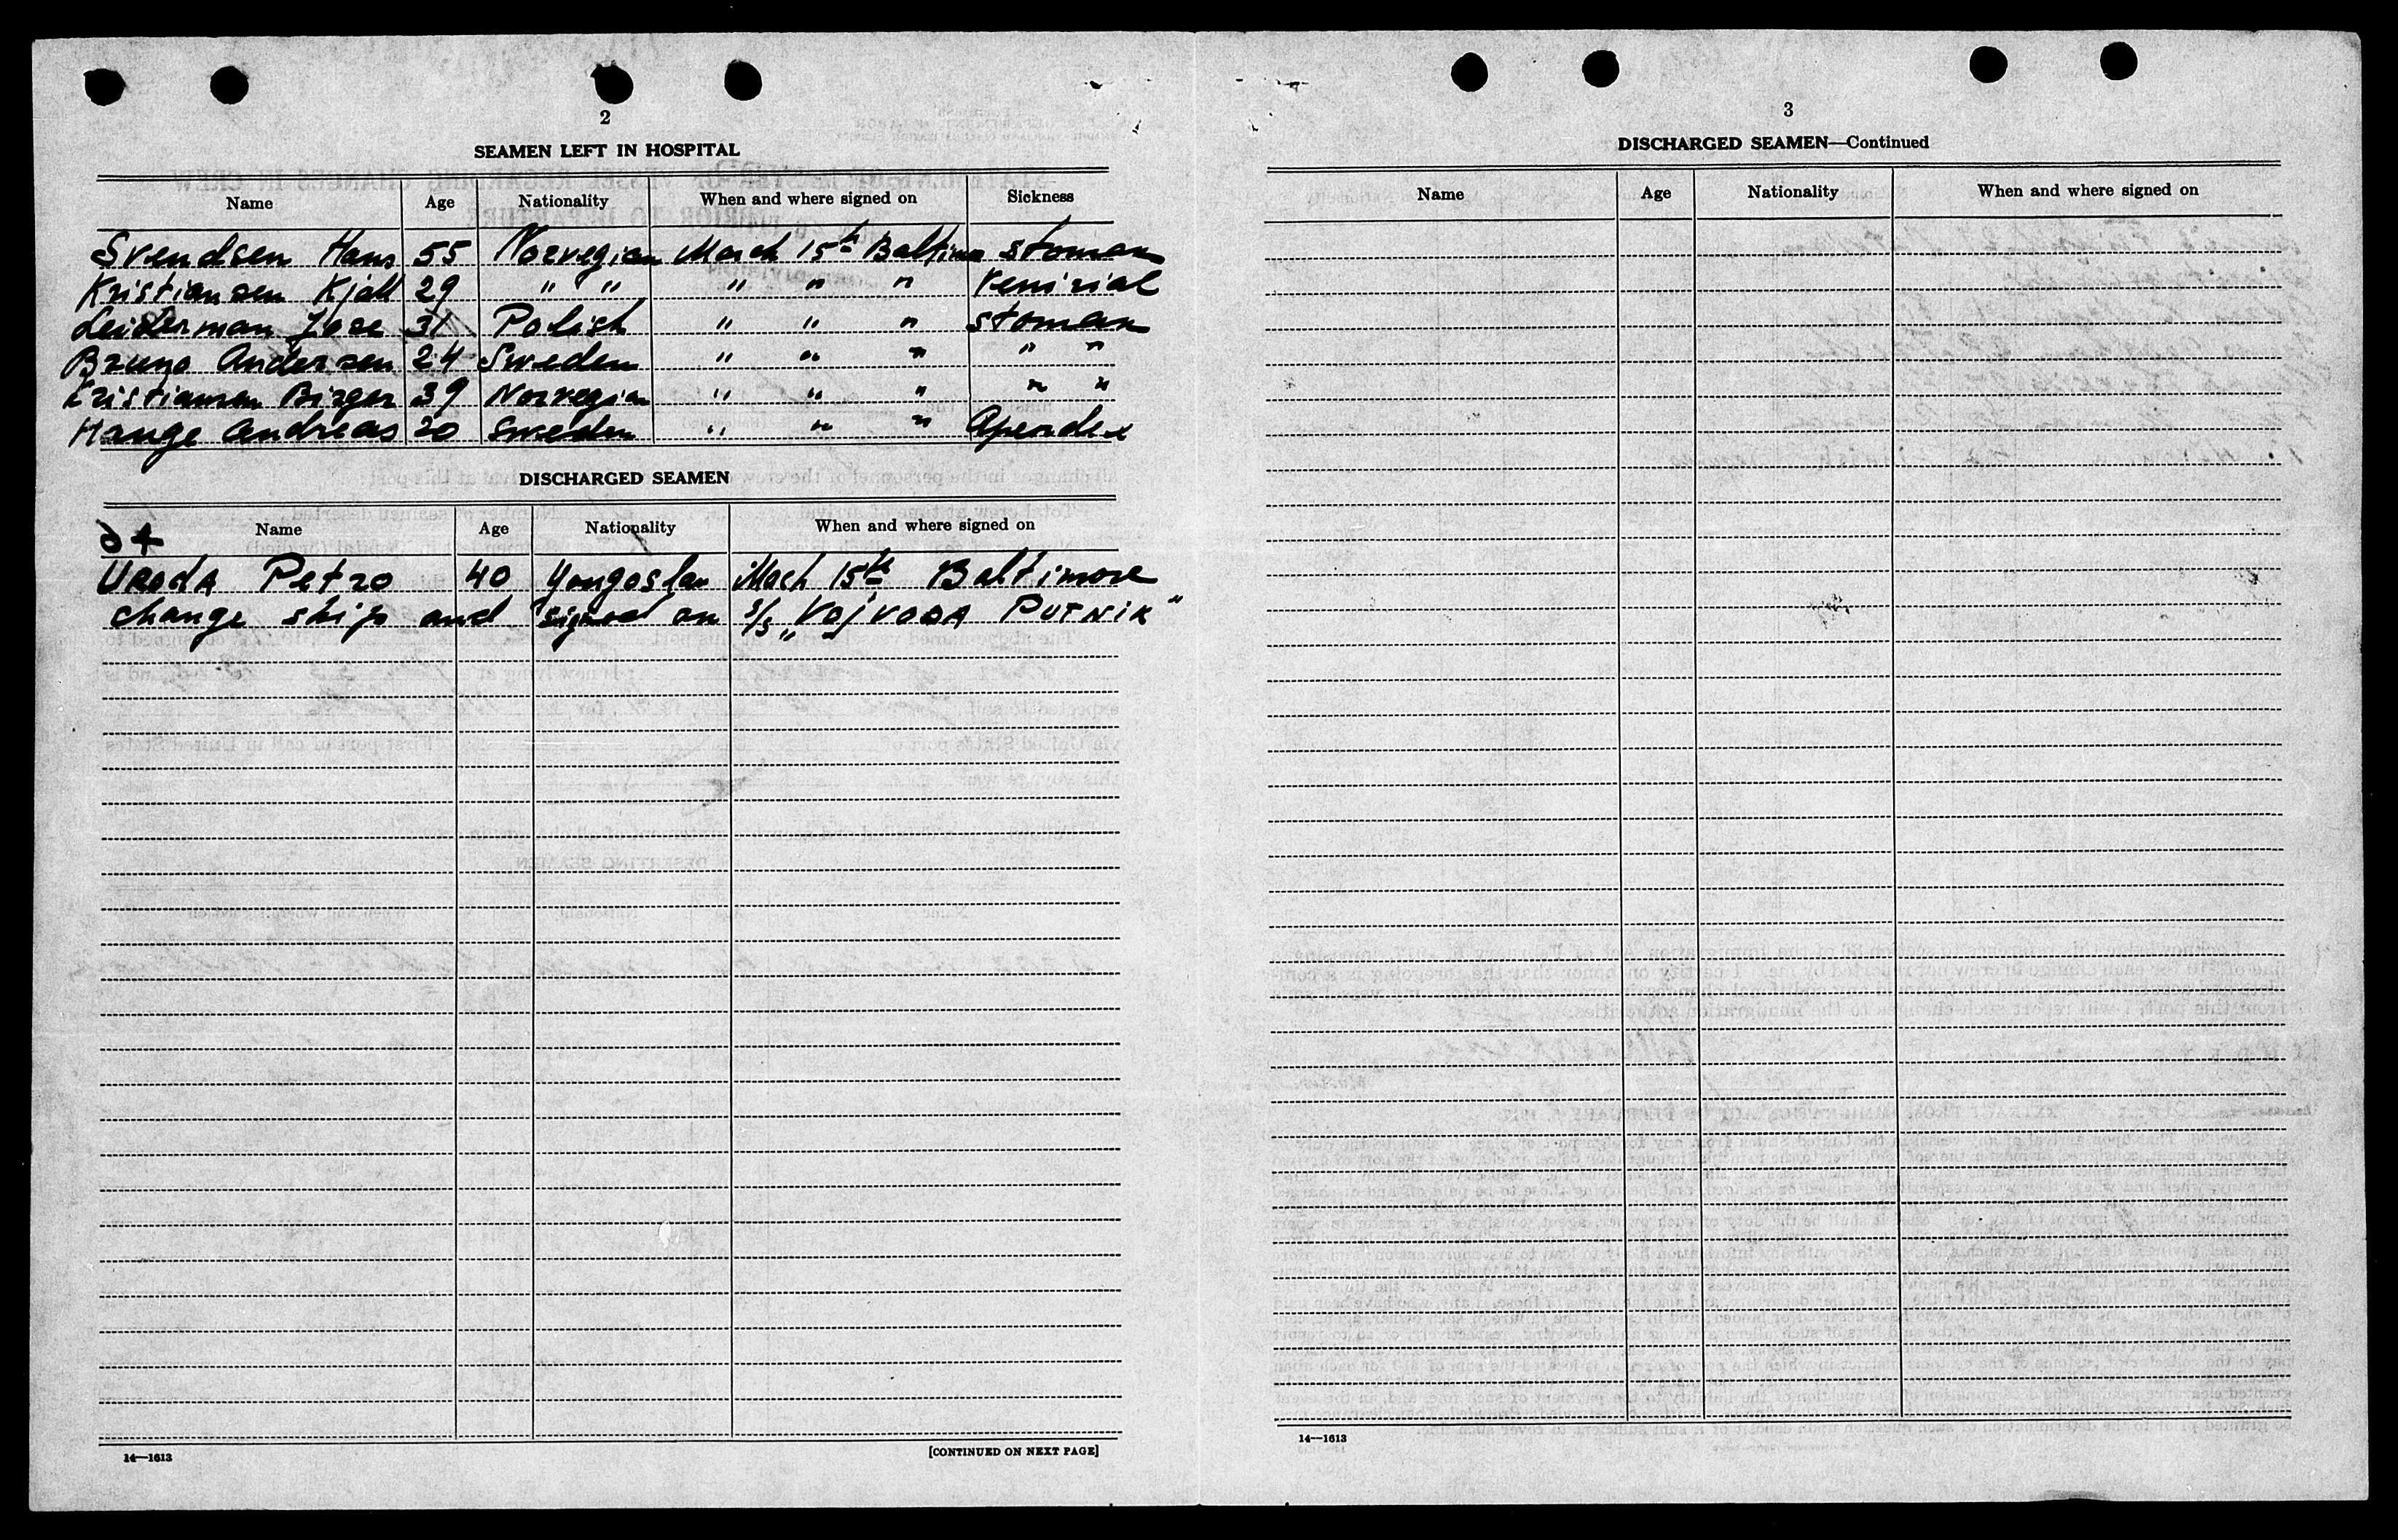 2
SEAMEN LEFT IN HOSPITAL
Name Age Nationality When and where signed on Sickness
Svendsen Hans 55 Norwegian March 15th Baltimo stoman
Kristiansen Kjell 29 " " " " " Venirial
Leiderman Jose 31 Polish " " " stoman
Bruno Andersen 24 Sweden " " " " "
Kristiansen Birger 39 Norvegian " " " " "
Hauge Andreas 20 Sweden " " " Apendex
DISCHARGED SEAMEN
Name Age Nationality When and where signed on
URODA Petro 40 Yougoslav Mach 15th Baltimore
change ship and signed on S/S „VOJVODA PUTNIK"
14—1613
[CONTINUED ON NEXT PAGE]
3
DISCHARGED SEAMEN—Continued
Name Age Nationality When and where signed on
14—1613